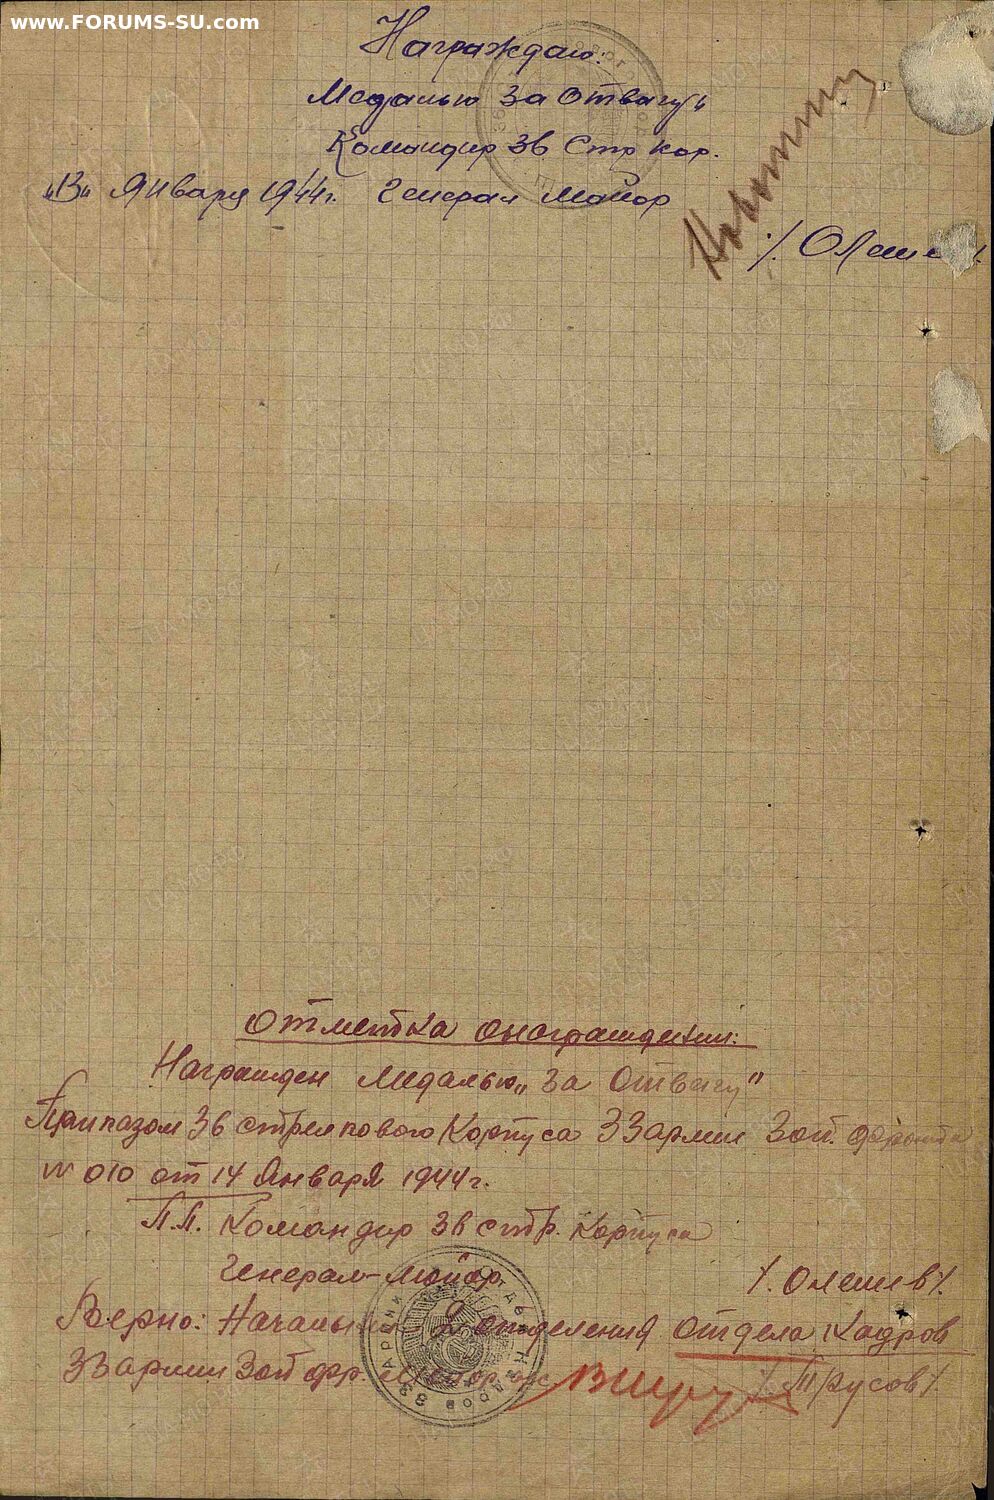 www.FORUMS-SU.com
Награждаю:
Медалью За Отвагу"
Командир 36 Стр кор.
"13" Января 1944г. Генерал Майор
/. Олеше
Отметка о награждении:
Награжден Медалью „За Отвагу"
Приказом 36 стрелкового Корпуса 33 армии Зап. фронта
№ 010 от 14 Января 1944 г.
П.П. Командир 36 стр. Корпуса
Генерал-Майор /. Олешев /.
Верно: Начальник 2 отделения отдела Кадров
33 армии Зап фр. Майор / Трусов /.